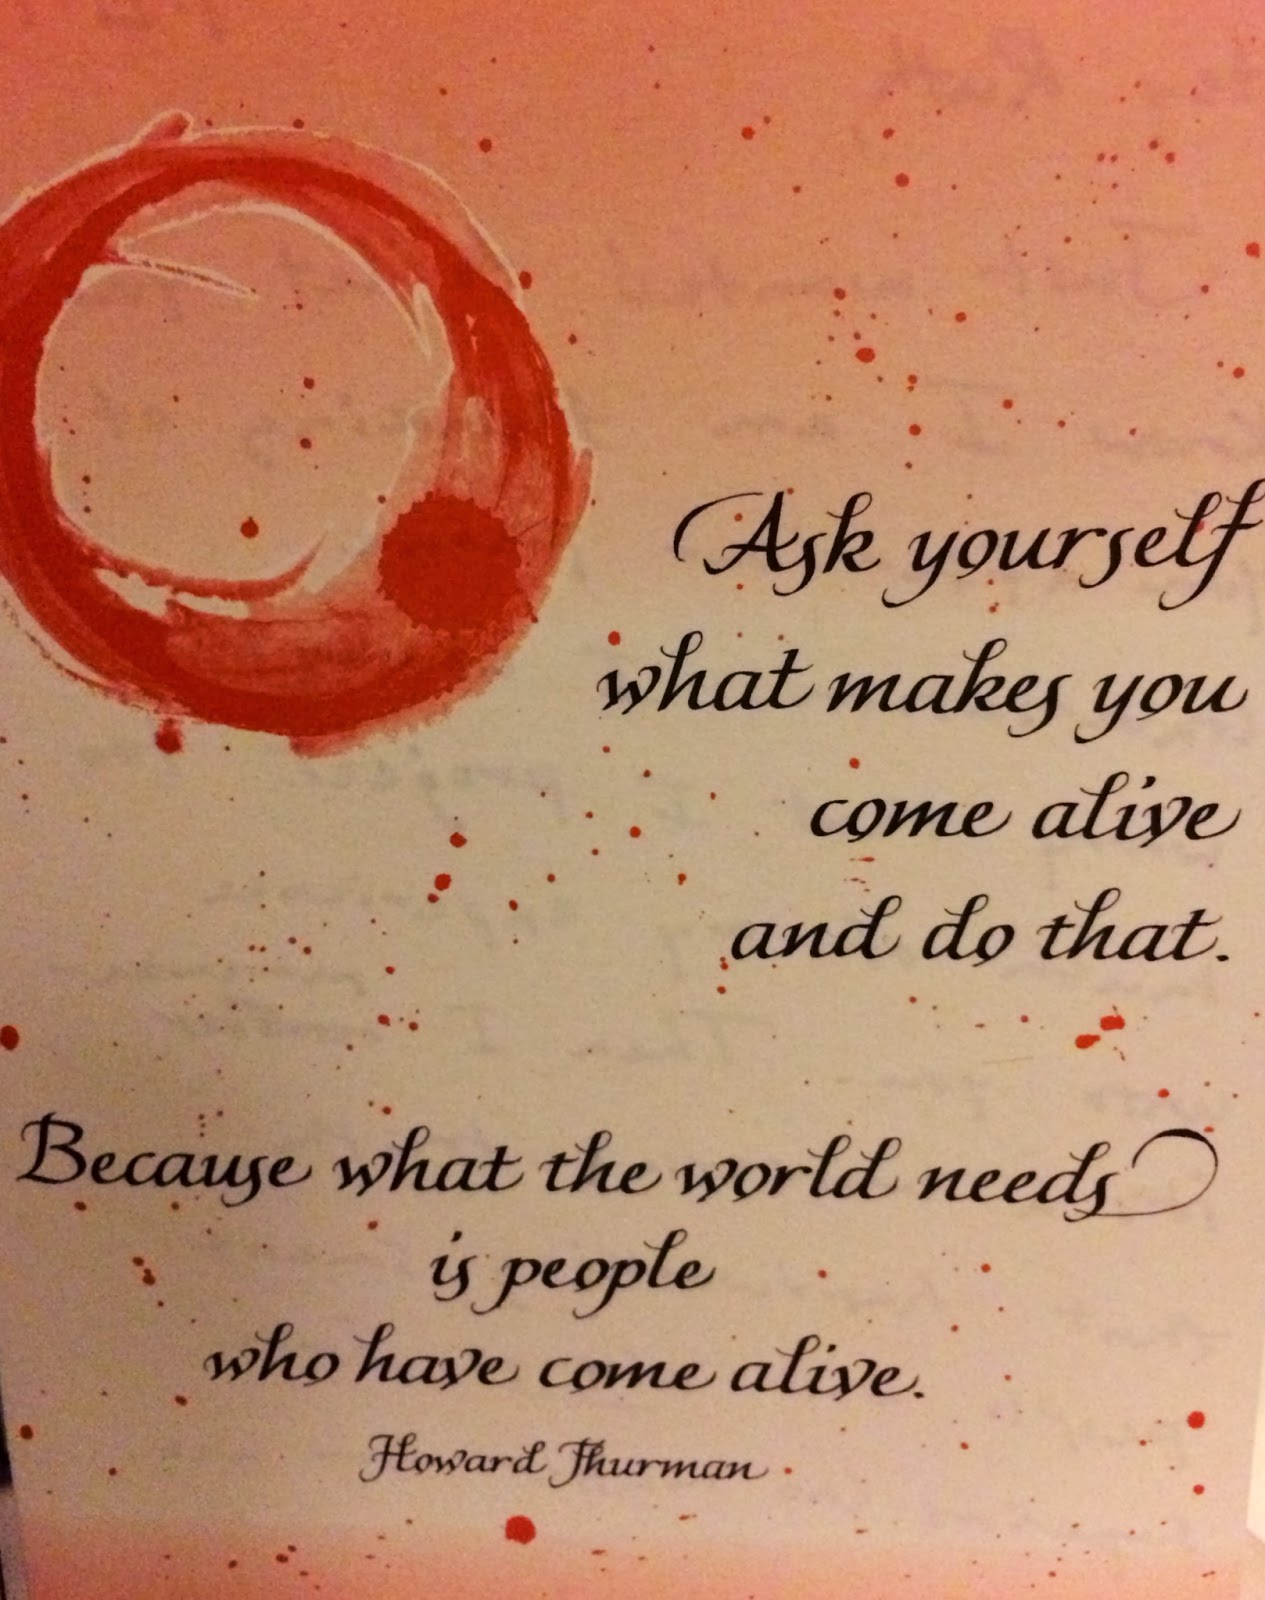 Ask yourself
what makes you
come alive
and do that.
Because what the world needs
is people
who have come alive.
Howard Thurman